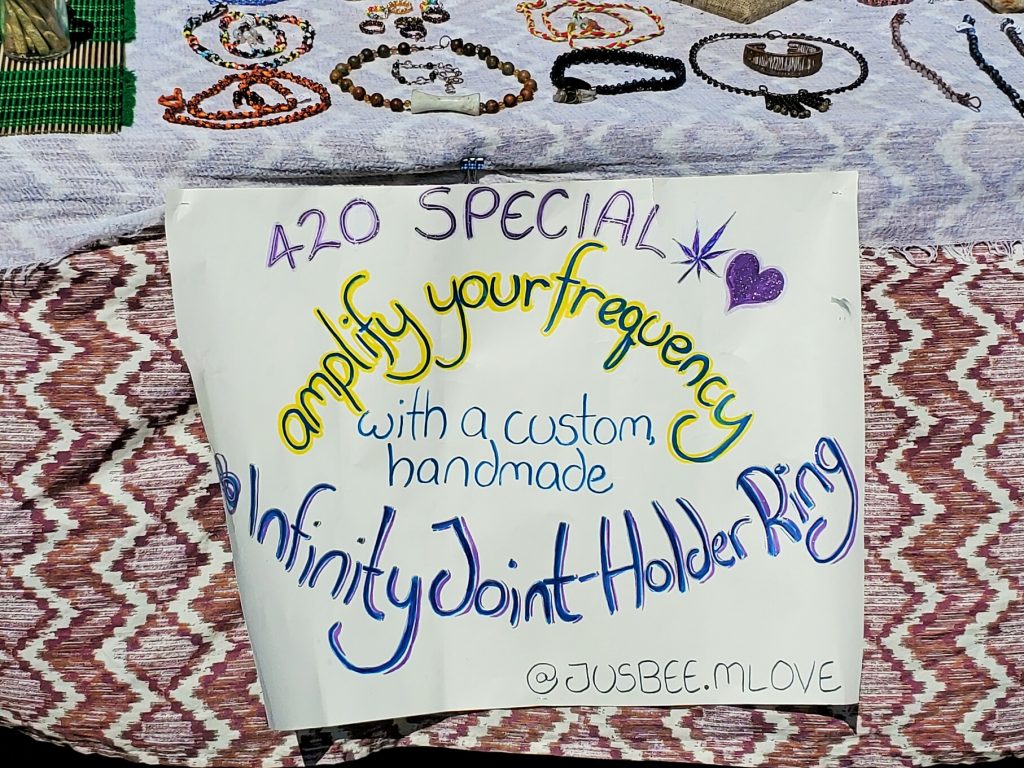 420 SPECIAL
amplify your frequency
with a custom,
handmade
Infinity Joint-Holder Ring
@JUSBEE.MLOVE